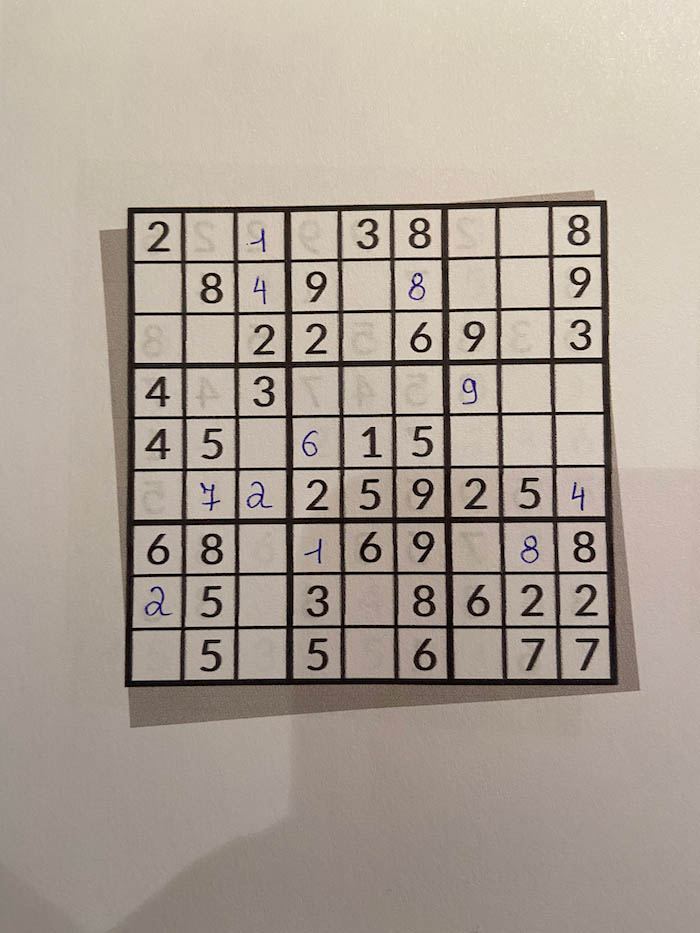 2 1 3 8 8
8 4 9 8 9
2 2 6 9 3
4 3 9
4 5 6 1 5
7 2 2 5 9 2 5 4
6 8 1 6 9 8 8
2 5 3 8 6 2 2
5 5 6 7 7